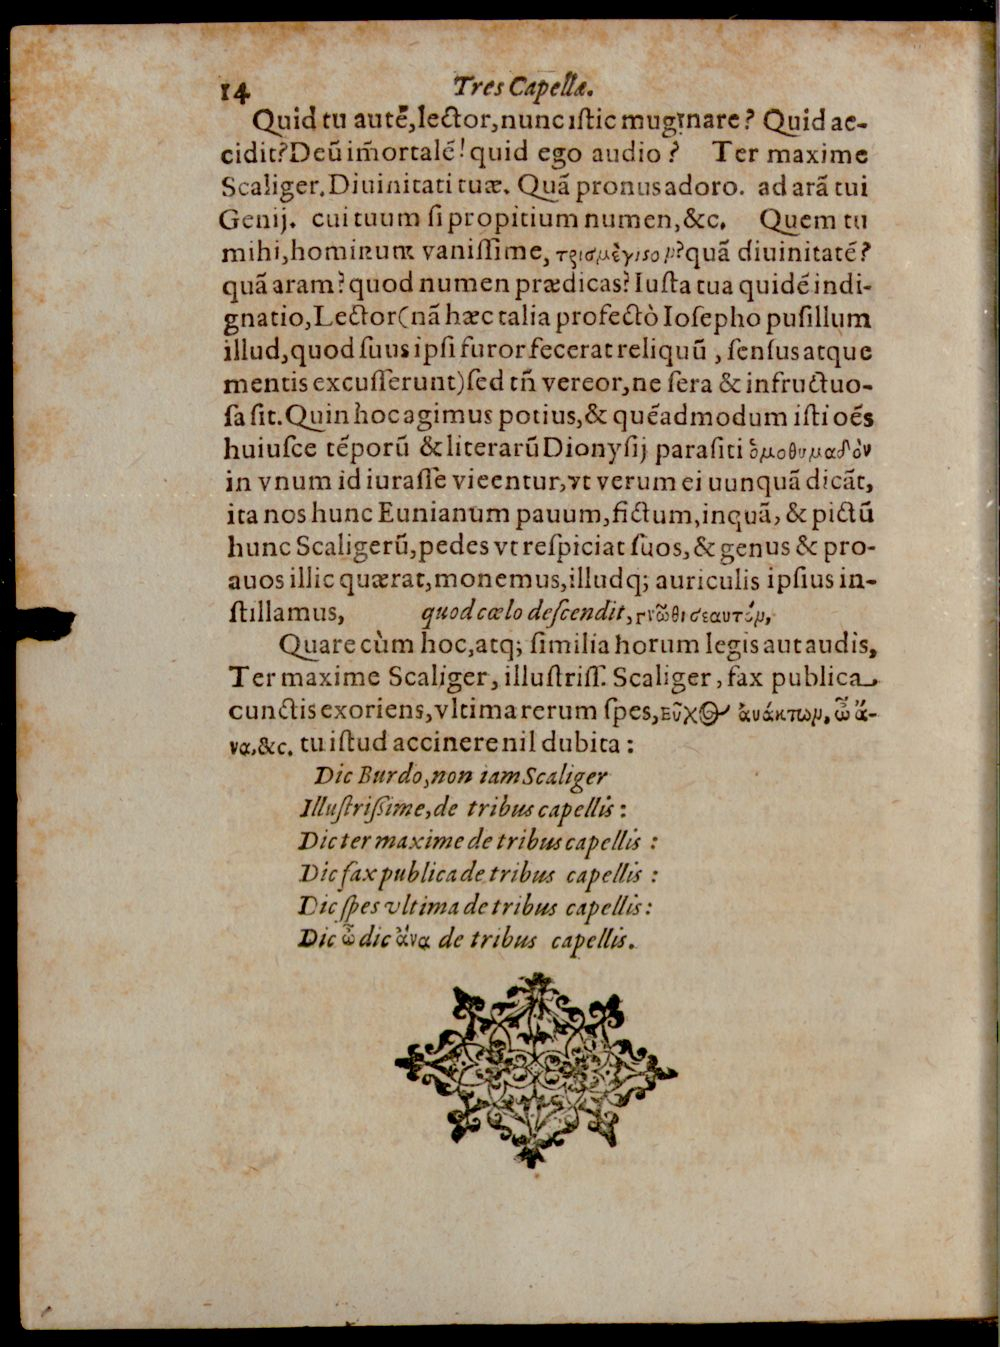 14 Tres Capellæ.
Quid tu autē, lector, nunc istic muginare? Quid ac-
cidit? Deū im̄ortalē! quid ego audio? Ter maxime
Scaliger. Diuinitati tuæ. Quā pronus adoro. ad arā tui
Genij. cui tuum si propitium numen, &c. Quem tu
mihi, hominum vanissime, τρισμέγιστον? quā diuinitatē?
quā aram? quod numen prædicas? Iusta tua quidē indi-
gnatio, Lector (nā hæc talia profectò Iosepho pusillum
illud, quod suus ipsi furor fecerat reliquū, sensus atque
mentis excusserunt) sed tn̄ vereor, ne sera & infructuo-
sa sit. Quin hoc agimus potius, & quēadmodum isti oēs
huiusce tēporū & literarū Dionysij parasiti ὁμοθυμαδὸν
in vnum id iurasse vicentur, vt verum ei uunquā dicāt,
ita nos hunc Eunianum pauum, fictum, inquā, & pictū
hunc Scaligerū, pedes vt respiciat suos, & genus & pro-
auos illic quærat, monemus, illudq; auriculis ipsius in-
stillamus, quod cœlo descendit, γνῶθι σεαυτόν,
Quare cùm hoc, atq; similia horum legis aut audis,
Ter maxime Scaliger, illustriss. Scaliger, fax publica
cunctis exoriens, vltima rerum spes, εὖχος ἀνάκτων, ὦ ἄ-
να, &c. tu istud accinere nil dubita:
Dic Burdo, non iam Scaliger
Illustrissime, de tribus capellis:
Dic ter maxime de tribus capellis:
Dic fax publica de tribus capellis:
Dic spes vltima de tribus capellis:
Dic ὦ dic ἄνα de tribus capellis.